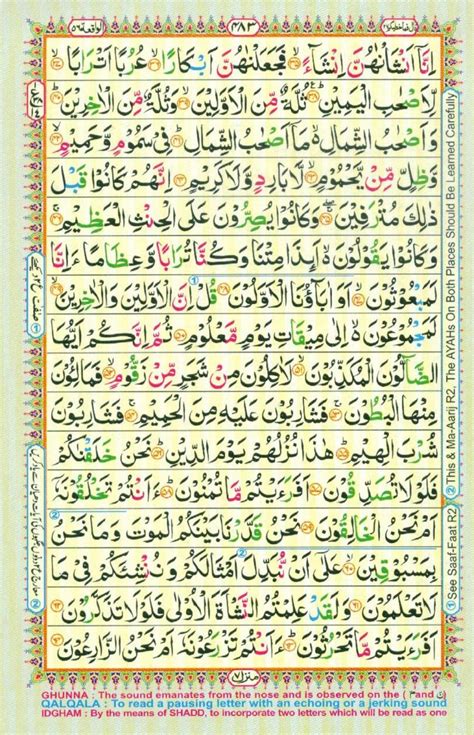 الواقعة ٥٦
٤٨٣
قال فما خطبكم ٢٧
اِنَّاۤ اَنْشَاْنٰهُنَّ اِنْشَآءً ۙ‏ فَجَعَلْنٰهُنَّ اَبْكَارًا ۙ‏ عُرُبًا اَتْرَابًا ۙ‏
لِّاَصْحٰبِ الْيَمِيْنِ ؕ‏ ثُلَّةٌ مِّنَ الْاَوَّلِيْنَ ۙ‏ وَثُلَّةٌ مِّنَ الْاٰخِرِيْنَ ؕ‏
وَاَصْحٰبُ الشِّمَالِ ۙ مَاۤ اَصْحٰبُ الشِّمَالِ ؕ‏ فِىْ سَمُوْمٍ وَّحَمِيْمٍ ۙ‏
وَّظِلٍّ مِّنْ يَّحْمُوْمٍ ۙ‏ لَّا بَارِدٍ وَّلَا كَرِيْمٍ‏ اِنَّهُمْ كَانُوْا قَبْلَ
ذٰلِكَ مُتْرَفِيْنَ ۚ‏ وَكَانُوْا يُصِرُّوْنَ عَلَى الْحِنْثِ الْعَظِيْمِ ۚ‏
وَكَانُوْا يَقُوْلُوْنَ ۙ اَئِذَا مِتْنَا وَكُنَّا تُرَابًا وَّعِظَامًا ءَاِنَّا
لَمَبْعُوْثُوْنَ ۙ‏ اَوَاٰبَآؤُنَا الْاَوَّلُوْنَ‏ قُلْ اِنَّ الْاَوَّلِيْنَ وَالْاٰخِرِيْنَ ۙ‏
لَمَجْمُوْعُوْنَ ۙ اِلٰى مِيْقَاتِ يَوْمٍ مَّعْلُوْمٍ‏ ثُمَّ اِنَّكُمْ اَيُّهَا
الضَّآلُّوْنَ الْمُكَذِّبُوْنَ ۙ‏ لَاٰكِلُوْنَ مِنْ شَجَرٍ مِّنْ زَقُّوْمٍ ۙ‏ فَمَالِئُوْنَ
مِنْهَا الْبُطُوْنَ ۚ‏ فَشَارِبُوْنَ عَلَيْهِ مِنَ الْحَمِيْمِ ۚ‏ فَشَارِبُوْنَ
شُرْبَ الْهِيْمِ ؕ‏ هٰذَا نُزُلُهُمْ يَوْمَ الدِّيْنِ ؕ‏ نَحْنُ خَلَقْنٰكُمْ
فَلَوْلَا تُصَدِّقُوْنَ‏ اَفَرَءَيْتُمْ مَّا تُمْنُوْنَ ؕ‏ ءَاَنْتُمْ تَخْلُقُوْنَهٗۤ
اَمْ نَحْنُ الْخٰلِقُوْنَ‏ نَحْنُ قَدَّرْنَا بَيْنَكُمُ الْمَوْتَ وَمَا نَحْنُ
بِمَسْبُوْقِيْنَ ۙ‏ عَلٰۤى اَنْ نُّبَدِّلَ اَمْثَالَكُمْ وَنُنْشِئَكُمْ فِىْ مَا
لَا تَعْلَمُوْنَ‏ وَلَقَدْ عَلِمْتُمُ النَّشْاَةَ الْاُوْلٰى فَلَوْلَا تَذَكَّرُوْنَ‏
اَفَرَءَيْتُمْ مَّا تَحْرُثُوْنَ ؕ‏ ءَاَنْتُمْ تَزْرَعُوْنَهٗۤ اَمْ نَحْنُ الزّٰرِعُوْنَ‏
منزل ٧
① See Saaf-Faat R2 ② This & Ma-Aarij R2, The AYAHs On Both Places Should Be Learned Carefully
GHUNNA : The sound emanates from the nose and is observed on the ( م and ن )
QALQALA : To read a pausing letter with an echoing or a jerking sound
IDGHAM : By the means of SHADD, to incorporate two letters which will be read as one